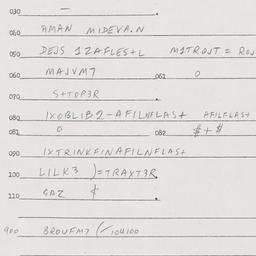 030 —
040 AMAN MIDEVA.N
050 DEJS 1ZAFLES+L M1TROJT = ROJ
060 MAJVM7 061 O
070 S++OP3R
080 1XOBLIB2-AFILNFLAS+ AFILFLAS+
081 O 082 $+$
090 1XTRINKFINAFILNFLAS+
100 LILK3 )=TRAXT3R
110 GAZ ¢
900 BROUFM7 (104100